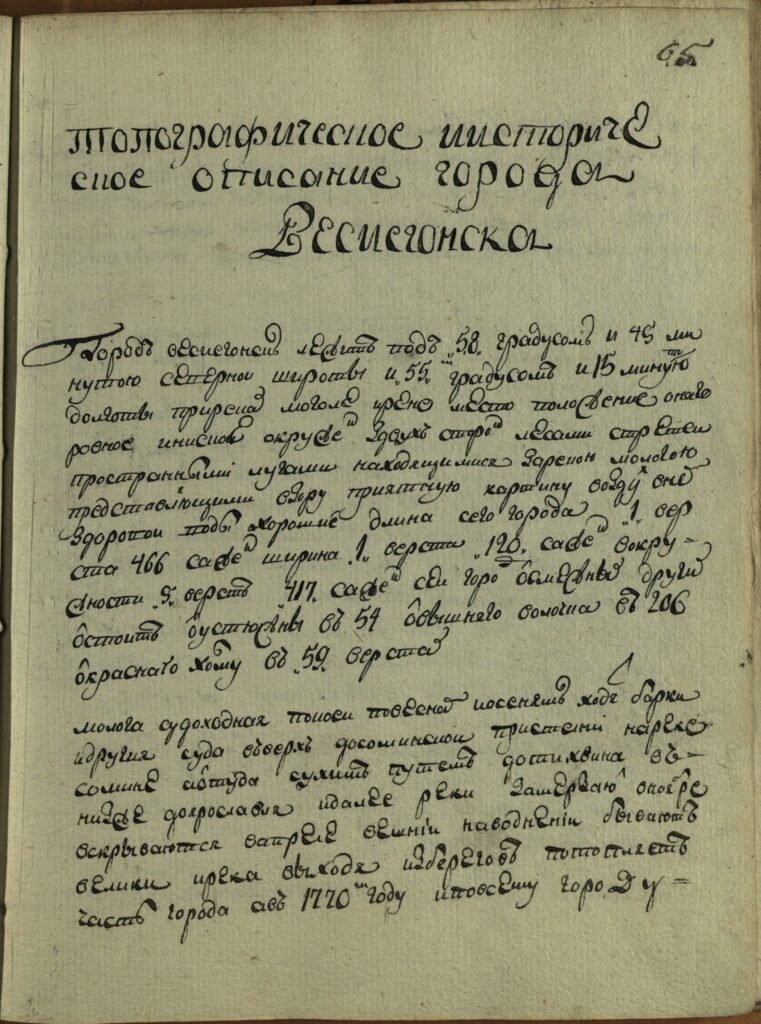 65
топографическое иисториче
ское описание города
Весиегонска
Городъ весиегонскъ лежитъ подъ „58„ градусомъ и 45 ми
нутою северной широты и „55„ градусомъ и 15 минутою
долготы прирекѣ мологе
место положение онаго
ровное инискои окружен здвухъ сторон лесами стретеи
пространными лугами находящимися зарекои мологою
представляющими взору приятную картину воздух внем
здоровои воды хорошие длина сего города „1„ вер
ста 466 сажен ширина „1„ верста „120„ сажен вокру-
жности „5„ верстъ „417„ сажен сеи город
други
отстоитъ
въ 54 отвышнего волочка въ 206
откраснаго холму въ „59„ верста
молога судоходная
повесной иосенямъ ходят барки
идругия суда въверхъ досоминской пристени нареке
сомине аоттуда сухимъ путемъ дотихвина въ-
ниже доярославля идалее реки замерзают вноябре
вскрываются вапреле вешнїи наводненїи бываютъ
велики ирека выходя избереговъ потопляетъ
часть города авъ 1770 году иповсему городу-